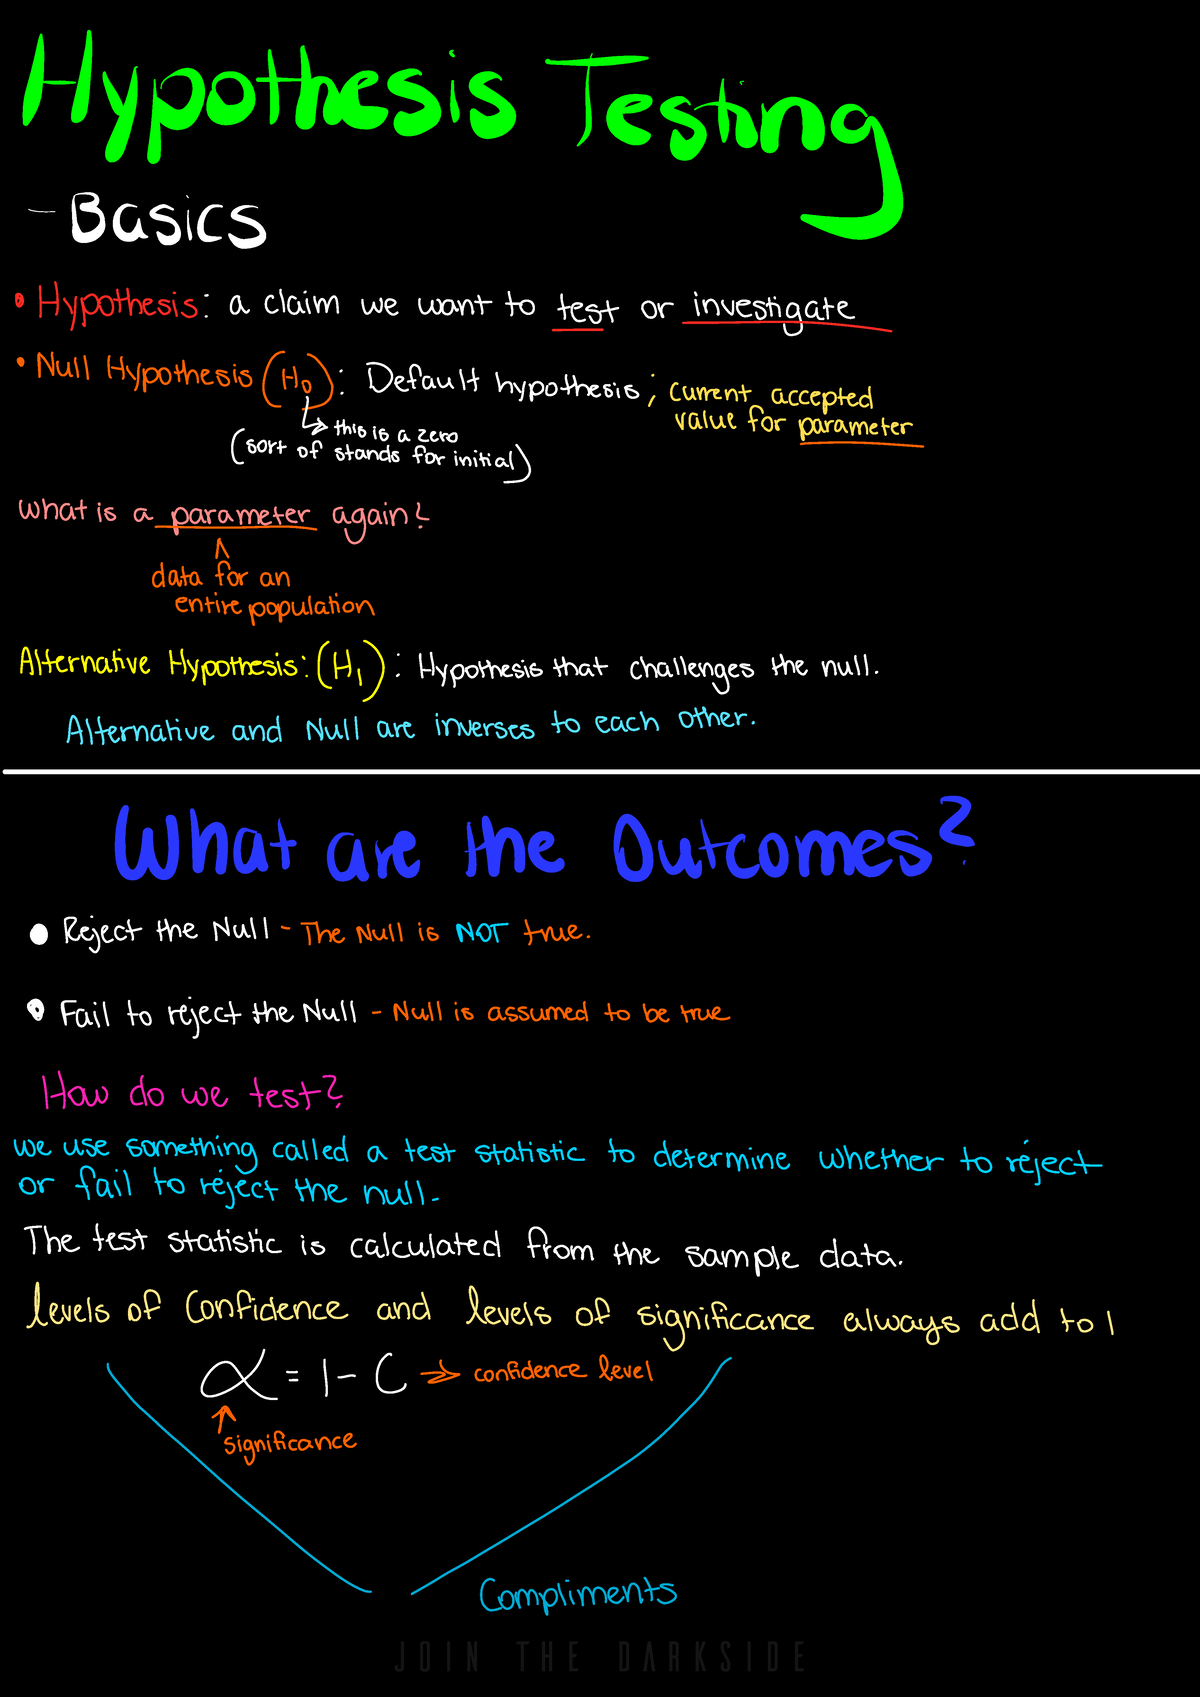 Hypothesis Testing
- Basics
• Hypothesis: a claim we want to test or investigate
• Null Hypothesis (H0): Default hypothesis; current accepted
value for parameter
this is a zero
(sort of stands for initial)
What is a parameter again?
data for an
entire population
Alternative Hypothesis: (H1): Hypothesis that challenges the null.
Alternative and Null are inverses to each other.
What are the Outcomes?
• Reject the Null - The Null is NOT true.
• Fail to reject the Null - Null is assumed to be true
How do we test?
we use something called a test statistic to determine whether to reject
or fail to reject the null.
The test statistic is calculated from the sample data.
levels of Confidence and levels of significance always add to 1
α = 1 - C → confidence level
significance
Compliments
JOIN THE DARKSIDE